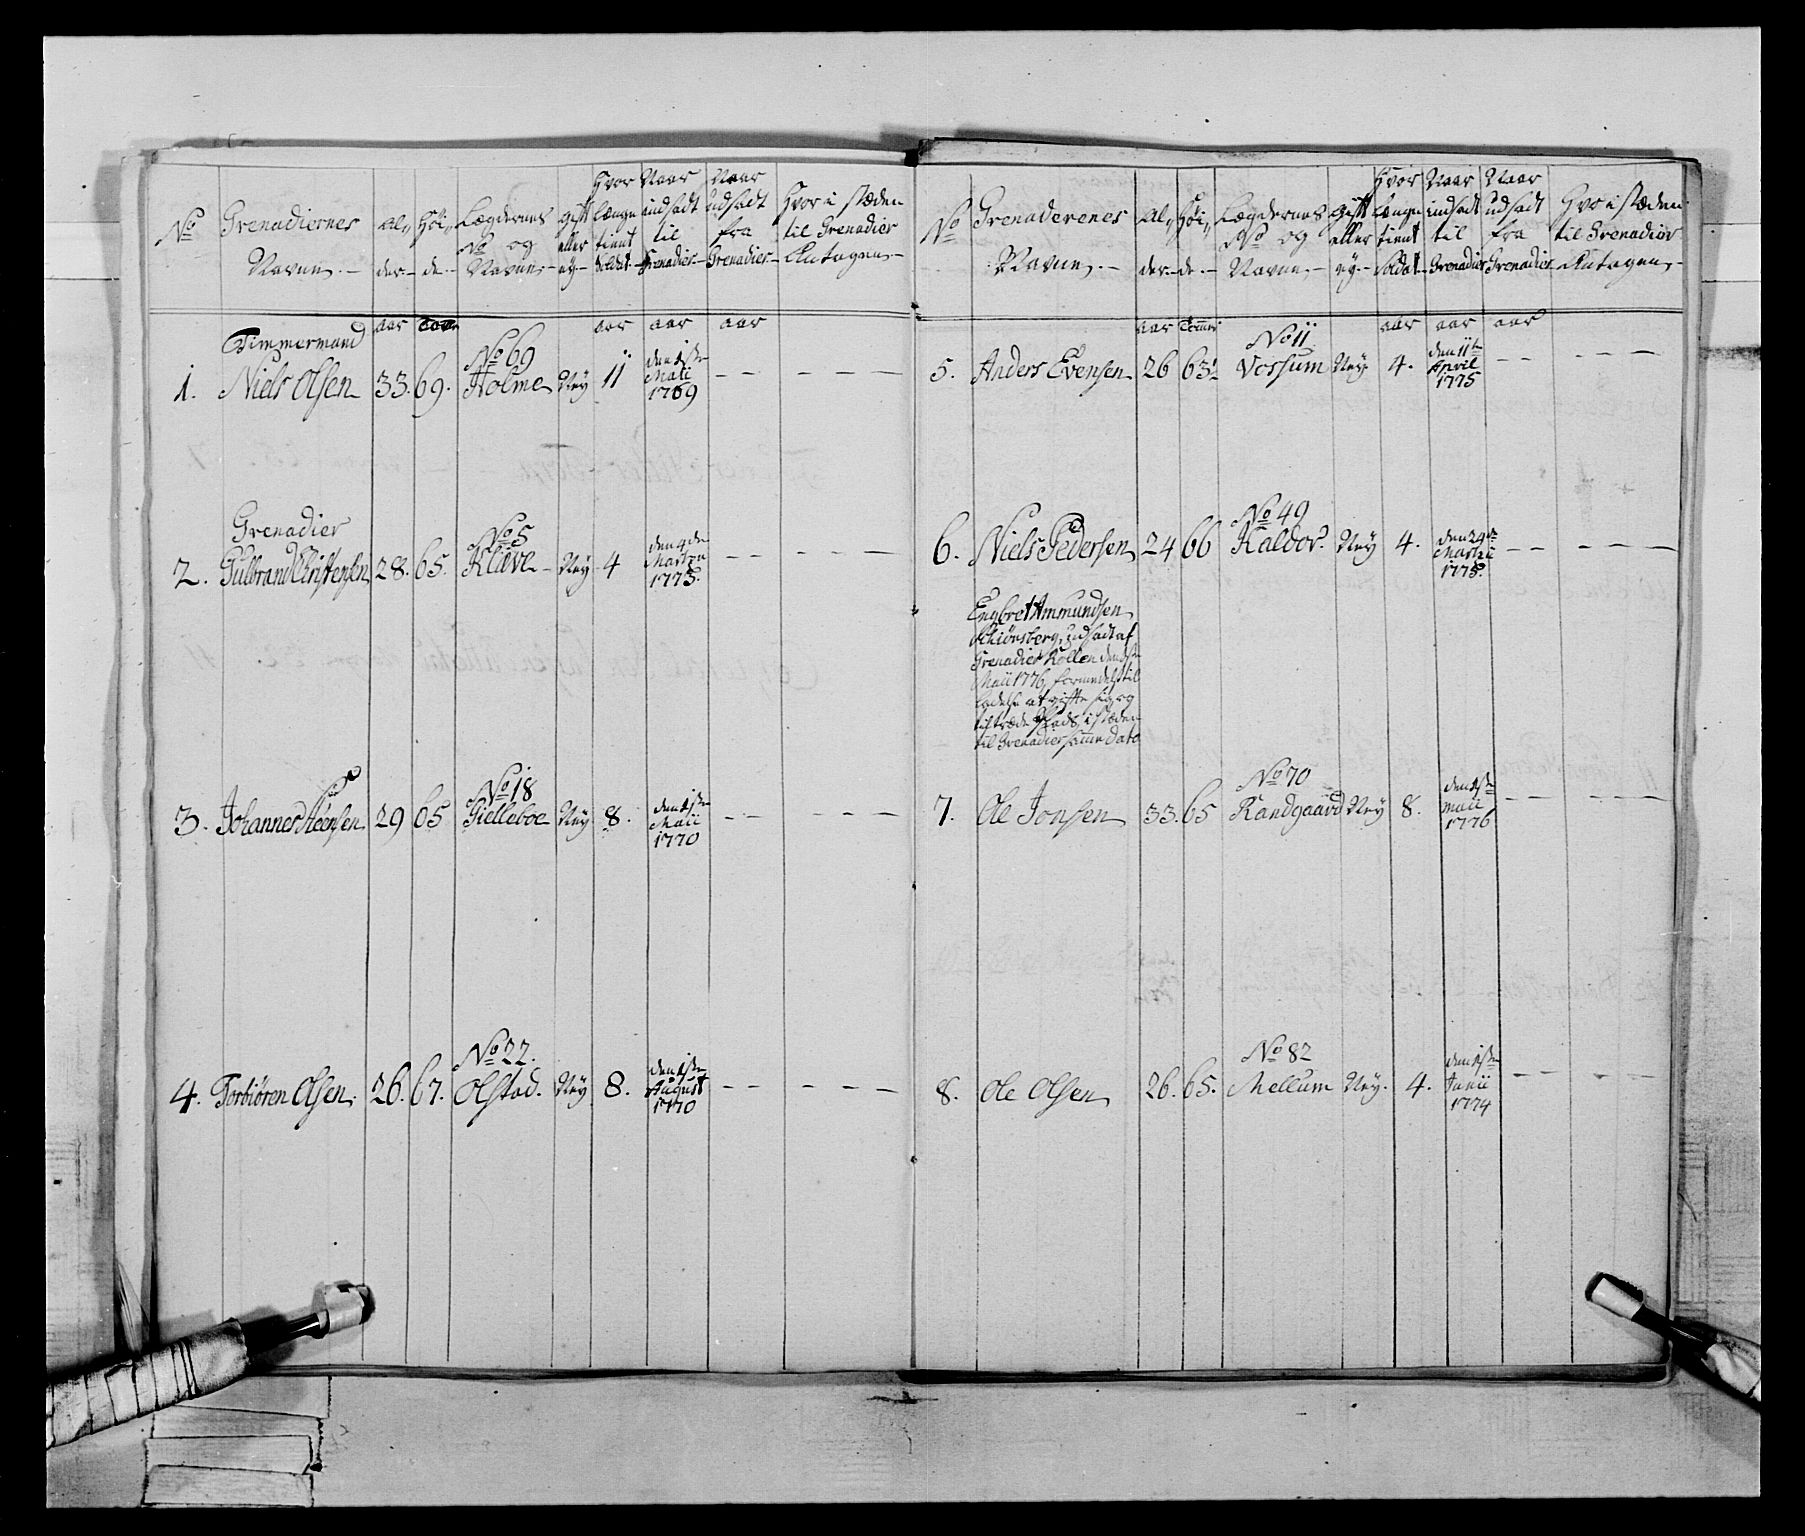 No Grenadiernes Navne.- Al„der- Høi„de.- Lægdernes No og Navne,- Gift eller ey.- Hvor længe tient Soldat- Naar indsadt til Grenadier- Naar udsadt fra Grenadier- Hvor i stæden til Grenadier Antagen,-
aar Tom aar aar aar
Timmermand
No 69
1. Niels Olsen 33. 69. Holme Ney 11 den 1ste Maii 1769 - - - - -
Grenadier
No 5
2. Gulbrand Christensen 28. 65. Klæve Ney 4 den 4de Martzii 1775. - - - - -
No 18
3. Johannes 29 65 Gielleboe Ney 8. den 1ste Maii 1770 - - - - -
No 22.
4. Torbiøren Olsen. 26. 67. Olstad. Ney 8. den 1ste August 1770 - - - - -
No Grenaderenes Navne.- Al„der- Høi„de.- Lægdernes No og Navne,- Gift eller ey.- Hvor længe tient Soldat- Naar indsadt til Grenadier Naar udsadt fra Grenadier Hvor i stæden til Grenadier Antagen,-
aar Tommer aar aar aar
No 11
5. Anders Evensen 26 63½ Vossum Ney 4. den 11te April 1775 - - - - -
No 49
6. Niels Pedersen 24 66 Kaldor. Ney 4. den 24de Martzii 1775. - - - - -
Engbret Ammundsen
Schiønsberg, udsadt af
Grenadier Rollen den 1ste
Maii 1776, formedelst til
ladelse at gifte sig og
tiltræde Plads, i stæden
til Grenadier samme dato
No 70
7. Ole Jonsen 33. 65 Randgaard Ney 8. den 1ste Maii 1776 - - - - -
No 82
8. Ole Olsen 26. 65. Mellum Ney. 4. den 1ste Junii 1774 - - - - -